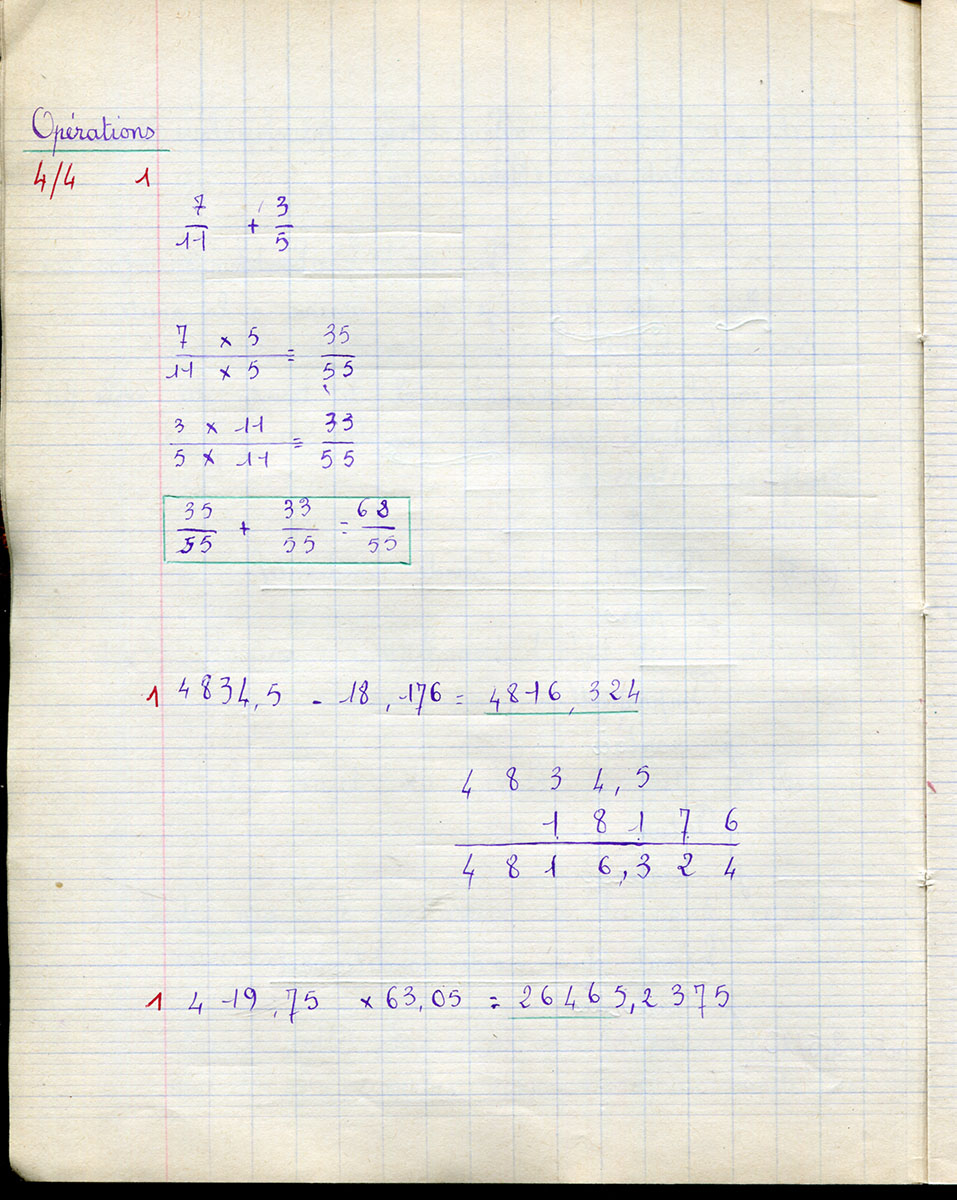 Opérations
4/4 1
7/11 + 3/5
7 × 5 / 11 × 5 = 35/55
3 × 11 / 5 × 11 = 33/55
35/55 + 33/55 = 68/55
1 4834,5 - 18,176 = 4816,324
4 8 3 4,5
1 8 1 7 6
4 8 1 6,3 2 4
1 419,75 × 63,05 = 26465,2375